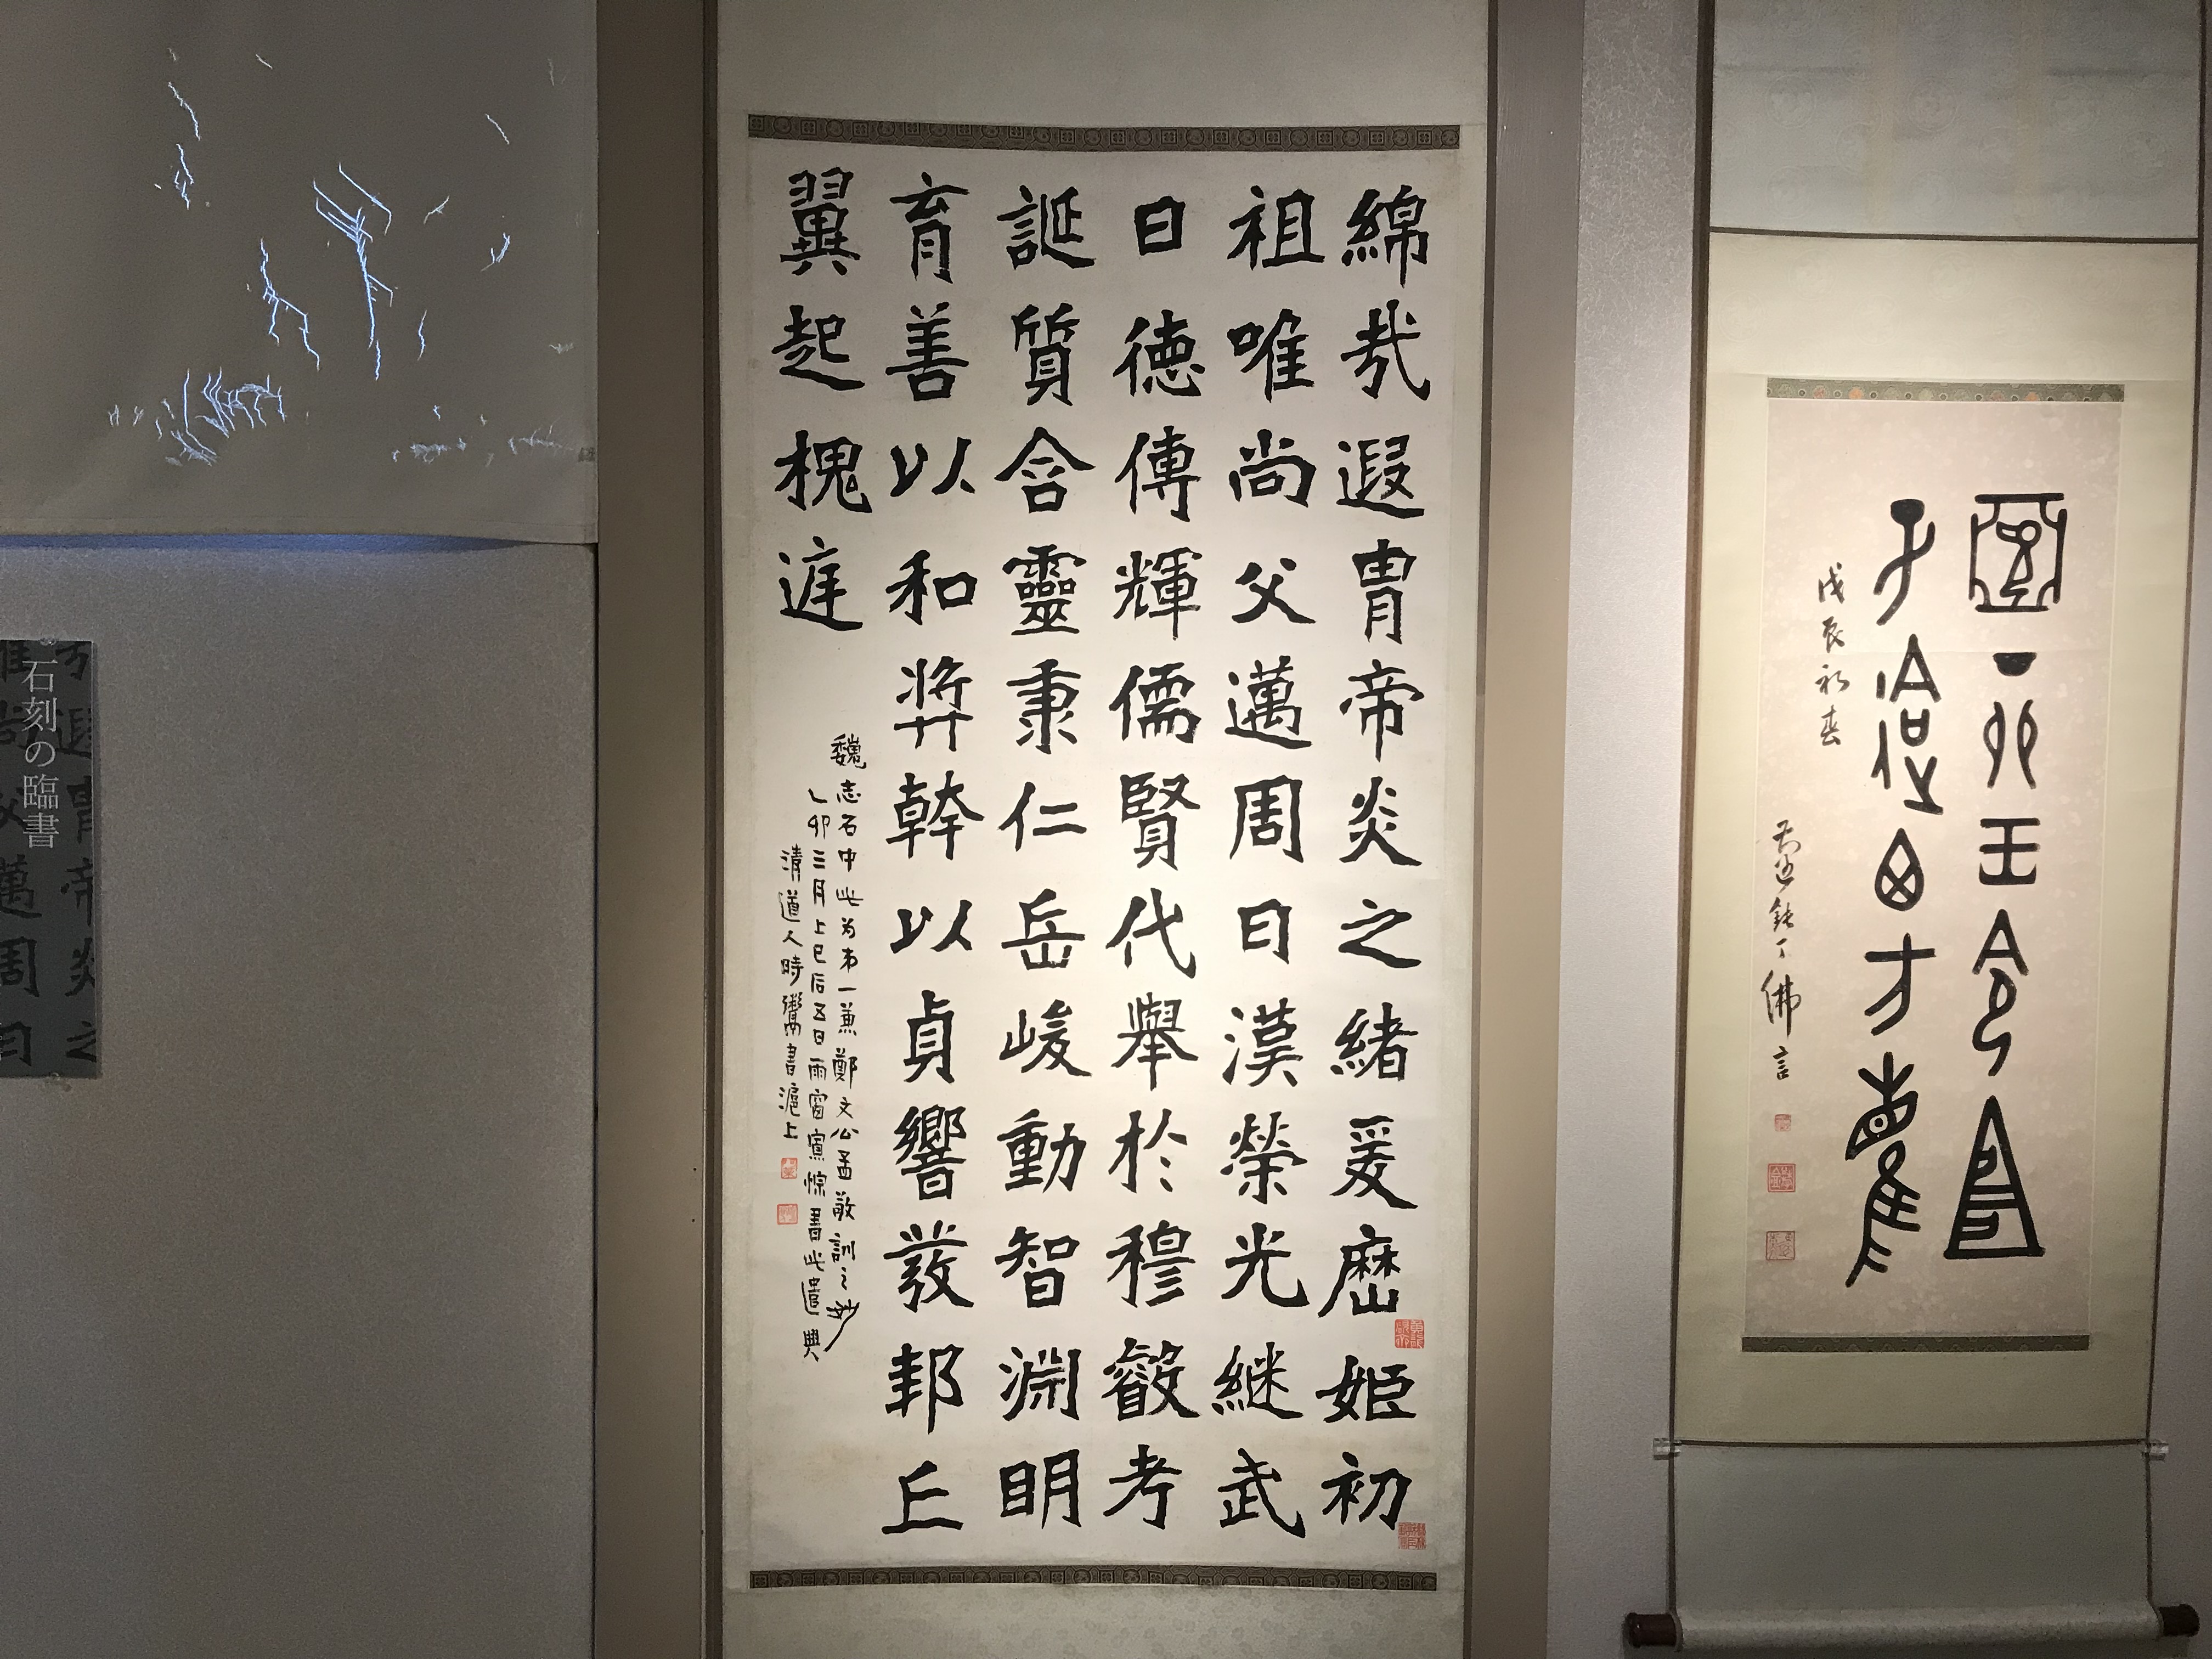 戊辰初春
鈍丁佛言
綿哉遐胄帝炎之緒爰歷姬初
祖唯尚父邁周曰漢榮光継武
日德傳輝儒賢代舉於穆叡考
誕質含靈秉仁岳峻動智淵明
育善以和奨幹以貞響發邦丘
翼起槐庭
魏志石中此为弟一兼鄭文公孟敬訓之妙
乙卯三月上巳后五日雨窗寡悰書此遣興
清道人時鬻書滬上
石刻の臨書